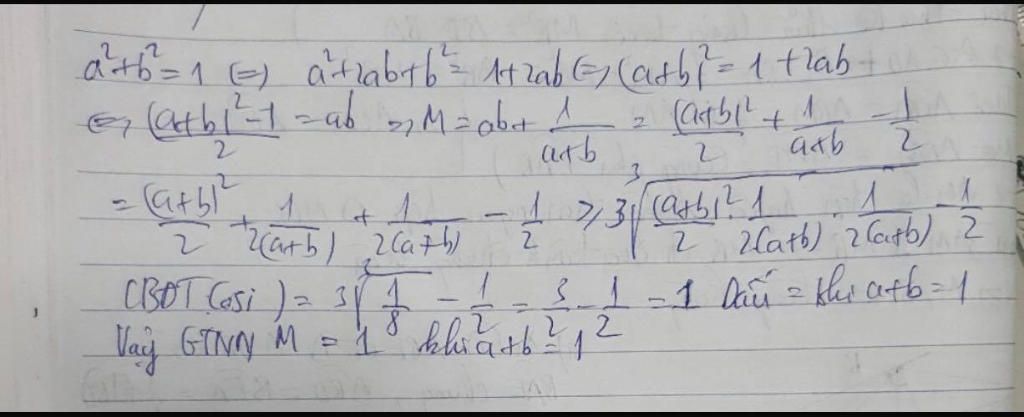 a²+b²=1 (=) a²+2ab+b²=1+2ab (=) (a+b)²=1+2ab
(=) ((a+b)²-1)/2 = ab => M = ab + 1/(a+b) = (a+b)²/2 + 1/(a+b) - 1/2
= (a+b)²/2 + 1/(2(a+b)) + 1/(2(a+b)) - 1/2 ≥ 3∛((a+b)²/2 . 1/(2(a+b)) . 1/(2(a+b))) - 1/2
(BĐT Cosi) = 3∛(1/8) - 1/2 = 3/2 - 1/2 = 1 Dấu = khi a+b=1
Vậy GTNN M = 1 khi a+b=1